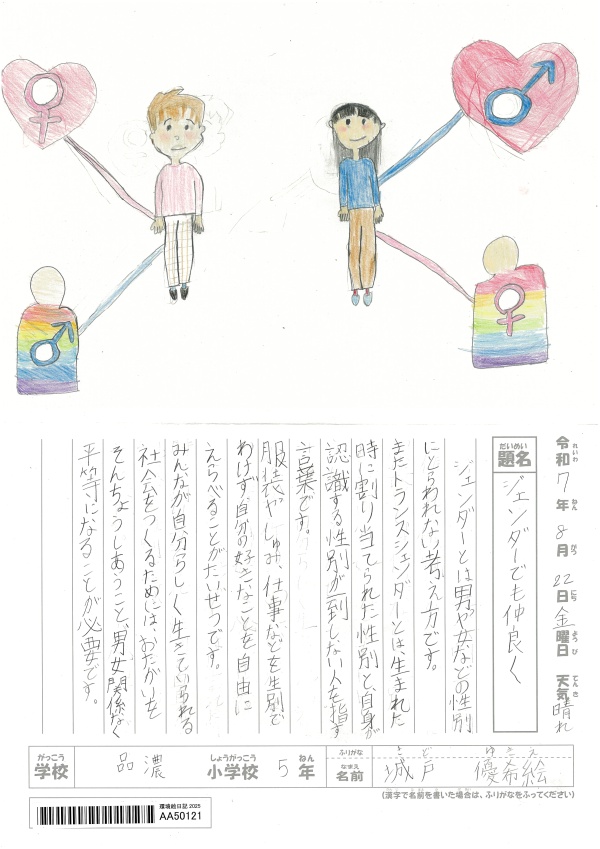 令和7年8月22日金曜日 天気晴れ
れいわ ねん がつ にち ようび てんき
だいめい
題名 ジェンダーでも仲良く
ジェンダーとは男や女などの性別
にとらわれない考え方です。
またトランスジェンダーとは、生まれた
時に割り当てられた性別と、自身が
認識する性別が一到しない人を指す
言葉です。
服装やしゅみ、仕事などを生別で
わけず、自分の好きなことを自由に
えらべることがたいせつです。
みんなが自分らしく生きていられる
社会をつくるためには、おたがいを
そんちょうしあうこと、男女関係なく
平等になることが必要です。
がっこう しょうがっこう ねん
学校 品濃 小学校 5年
ふりがな きど ゆきえ
なまえ
名前 城戸 優希絵
(漢字で名前を書いた場合は、ふりがなをふってください)
環境絵日記 2025
AA50121